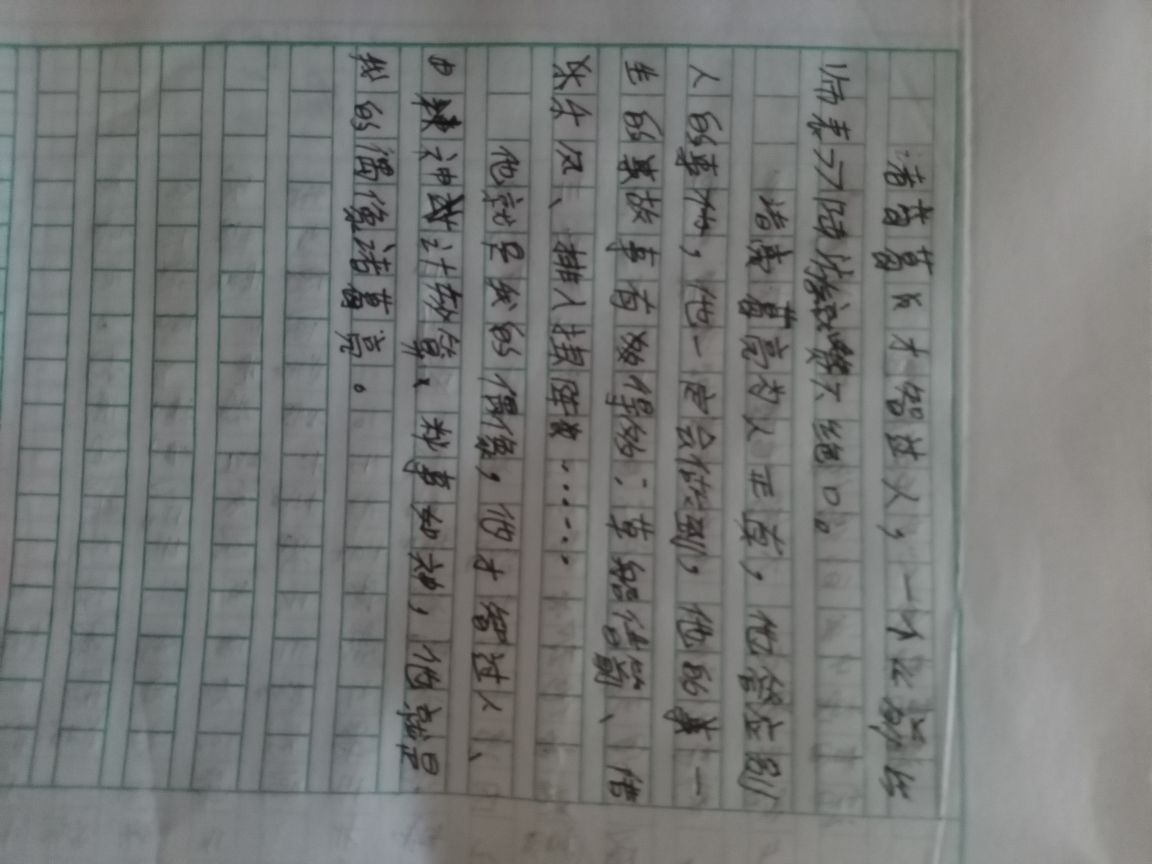 诸葛亮才智过人，一个《前出
师表》陆游赞叹不绝口。
诸葛亮为人正直，他答应别
人的事何，他一定会做到，他的一
生的故事有数得的：草船借箭、借
东风、排八接阵……
他就是我的偶像，他才智过人、
神计妙算、料事如神，他就是
我的偶像诸葛亮。